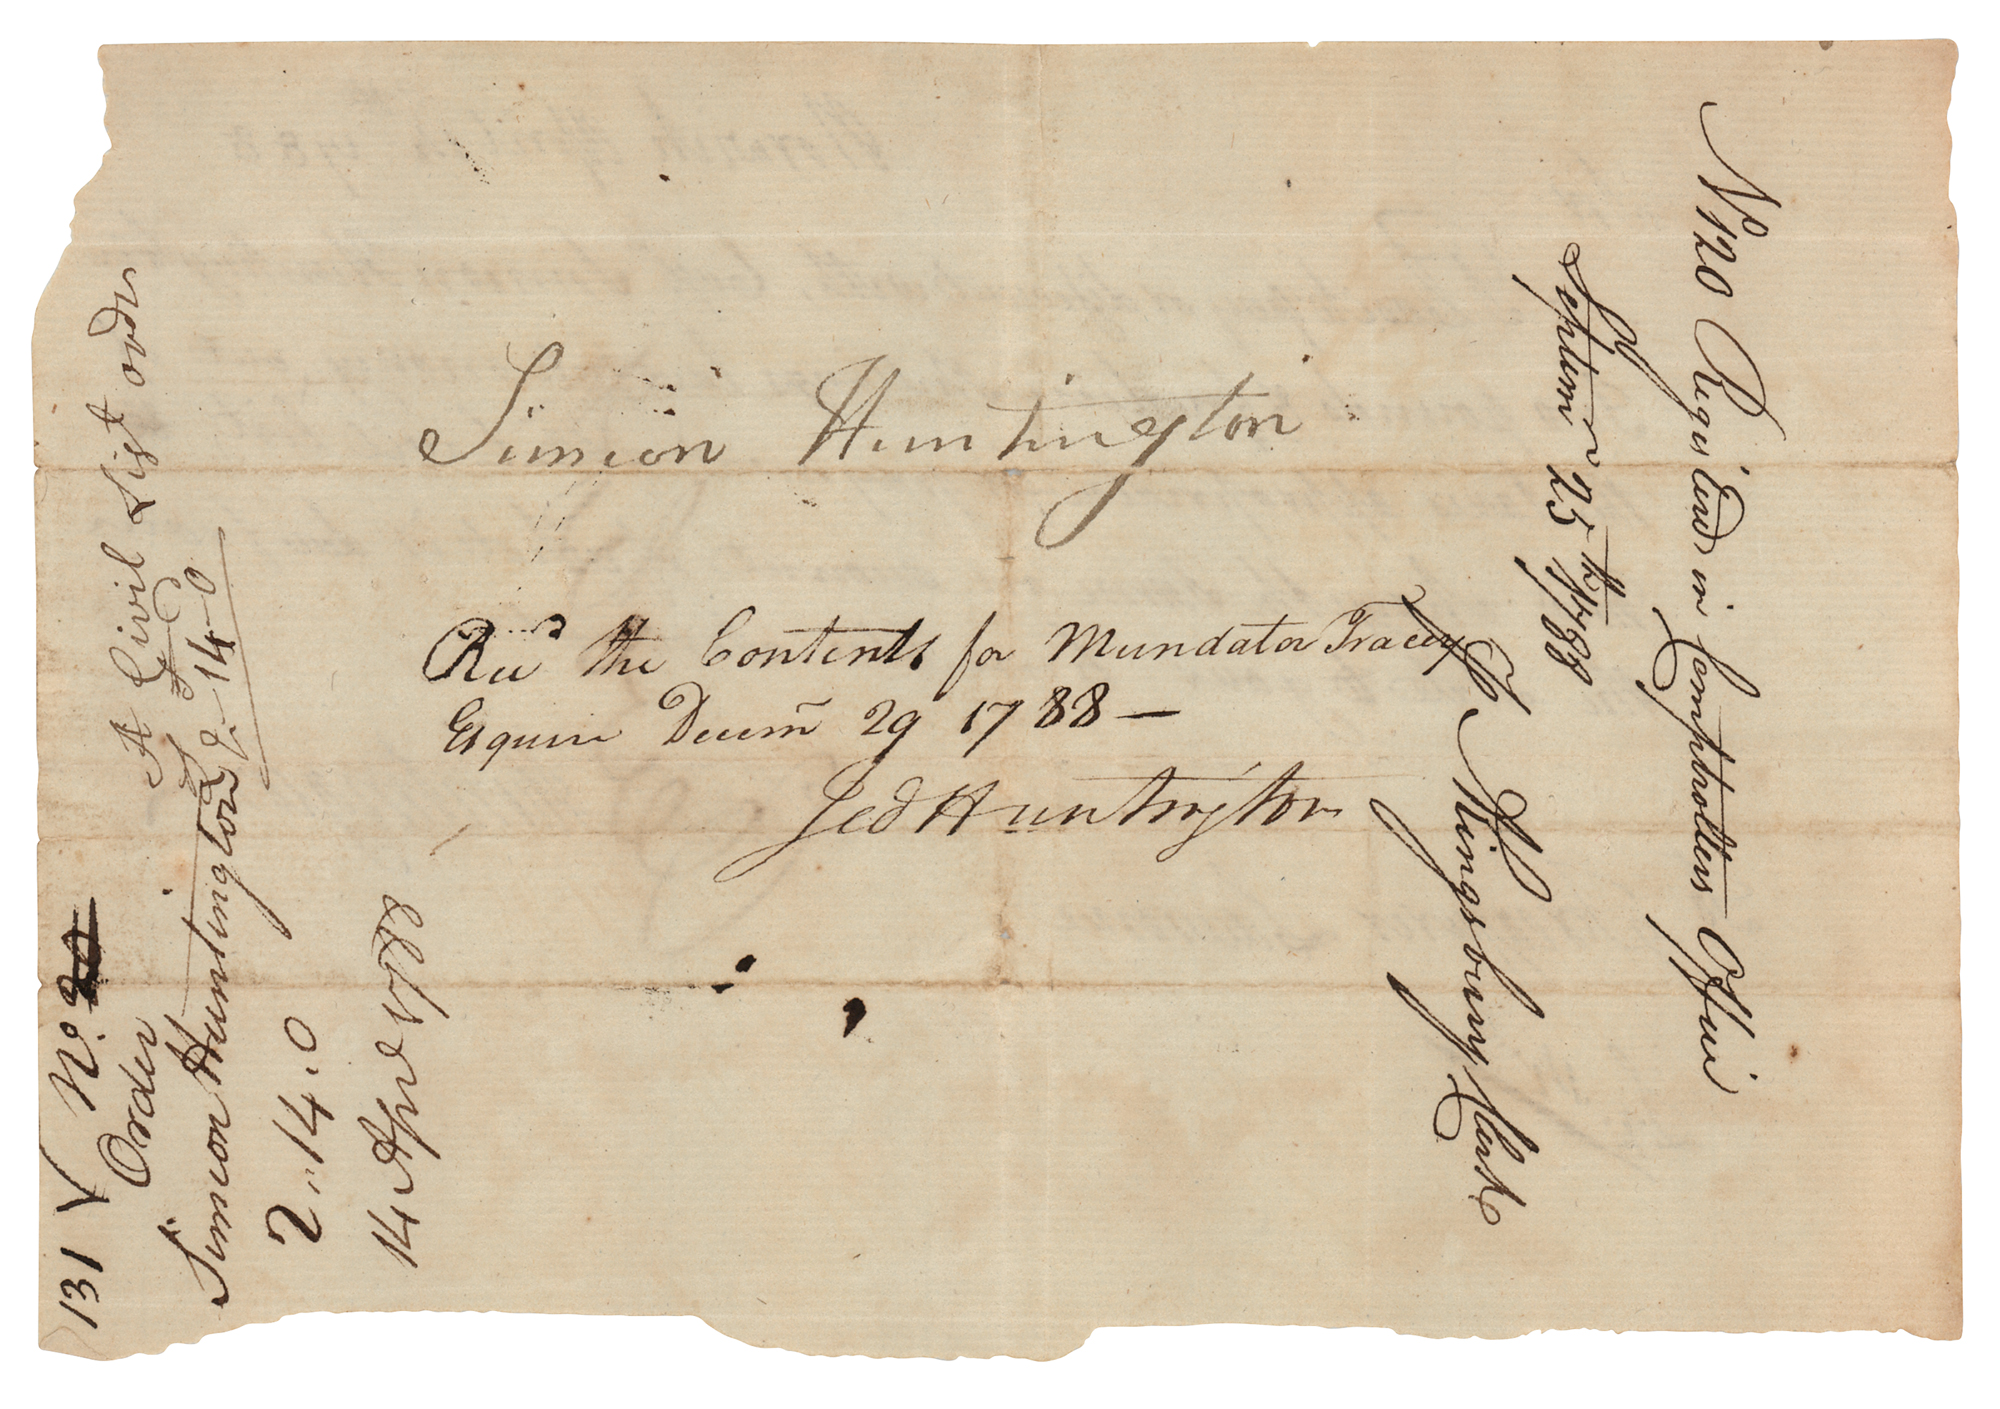 Simeon Huntington
Recd the Contents for Mundator Tracey
Esquire Decemr 29 1788 —
Jed Huntington
No 120 Regis'terd in Comptrollers Office
Septemr 25th 1788
Kingsbury Clerk
131 No.
Order
Simeon Huntington
2..14..0
14 Apr 1788
A Civil List order
£2-14-0